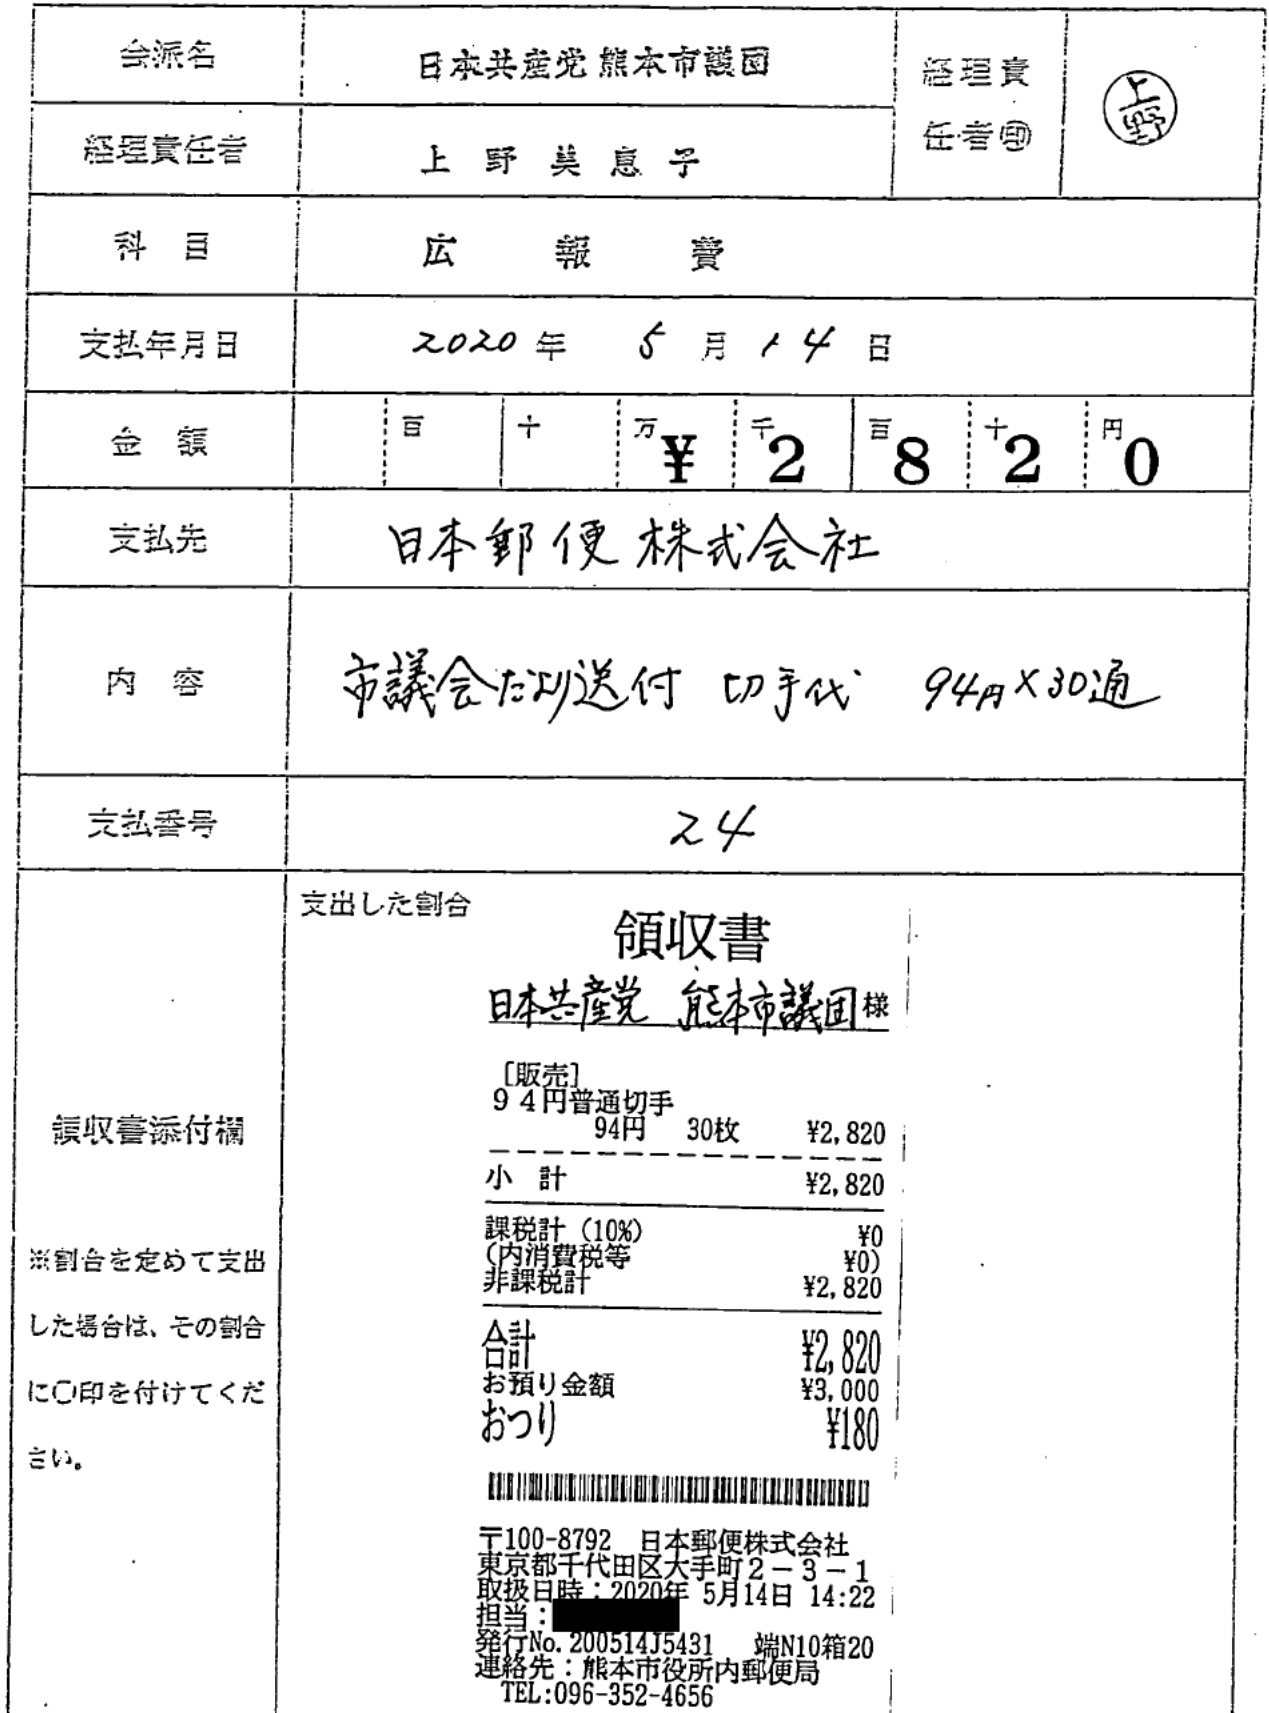 会派名 日本共産党熊本市議団
経理責任者㊞ 上野
経理責任者 上野美恵子
科目 広報費
支払年月日 2020年 5月14日
金額 百 十 万¥ 千2 百8 十2 円0
支払先 日本郵便株式会社
内容 市議会だより送付 切手代 94円×30通
支払番号 24
領収書添付欄
※割合を定めて支出
した場合は、その割合
に〇印を付けてくだ
さい。
支出した割合
領収書
日本共産党 熊本市議団様
[販売]
94円普通切手
94円 30枚 ¥2,820
小計 ¥2,820
課税計(10%) ¥0
(内消費税等 ¥0)
非課税計 ¥2,820
合計 ¥2,820
お預り金額 ¥3,000
おつり ¥180
〒100-8792 日本郵便株式会社
東京都千代田区大手町2-3-1
取扱日時:2020年 5月14日 14:22
担当:
発行No.200514J5431 端N10箱20
連絡先:熊本市役所内郵便局
TEL:096-352-4656